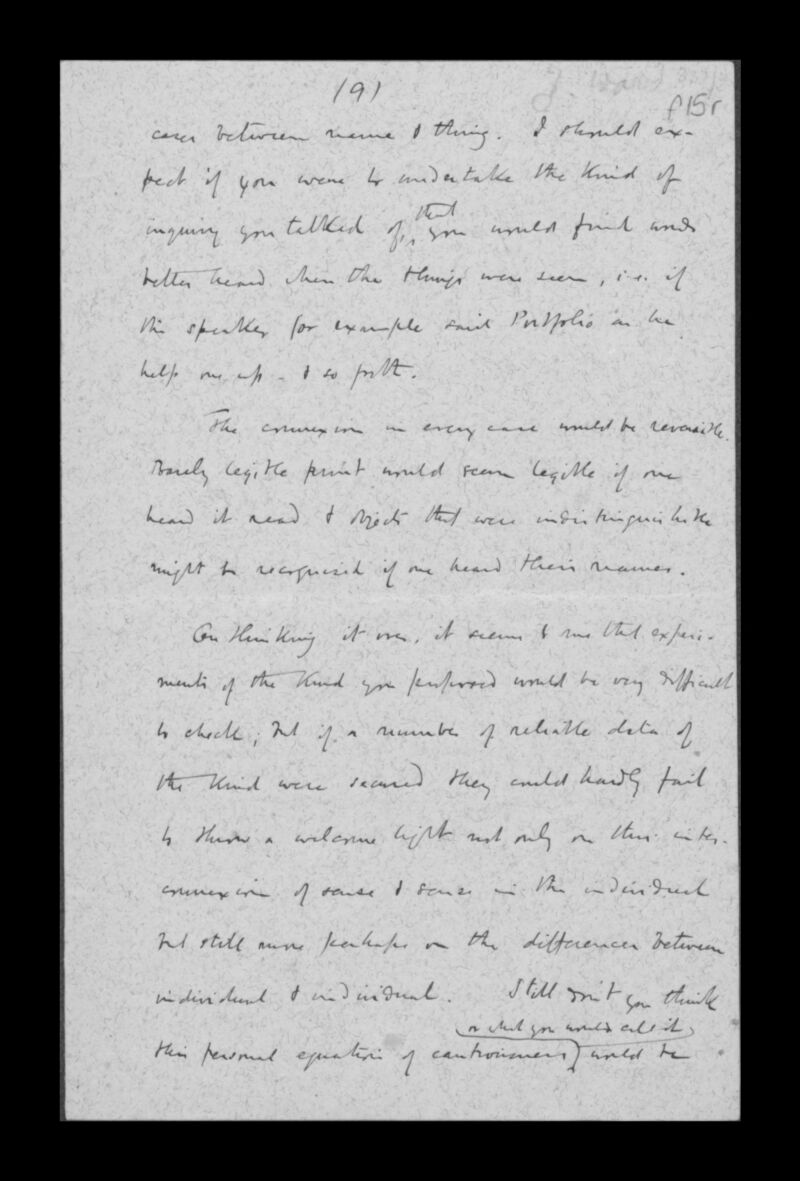 (9)
f15r
cases between name & thing. I should ex-
pect if you were to undertake the kind of
inquiry you talked of, that you would find words
better heard when the things were seen, i.e. if
the speaker for example said Portfolio as he
held one up – & so forth.
The connexion in every case would be reversible.
Barely legible print would seem legible if one
heard it read & objects that were indistinguishable
might be recognised if one heard their names.
On thinking it over, it seems to me that experi-
ments of the kind you proposed would be very difficult
to check; but if a number of reliable data of
the kind were secured they could hardly fail
to throw a welcome light not only on this inter-
connexion of sense & sense in the individual
but still more perhaps on the differences between
individual & individual. Still don't you think
(or what you would call it)
this personal equation of cautiousness would be